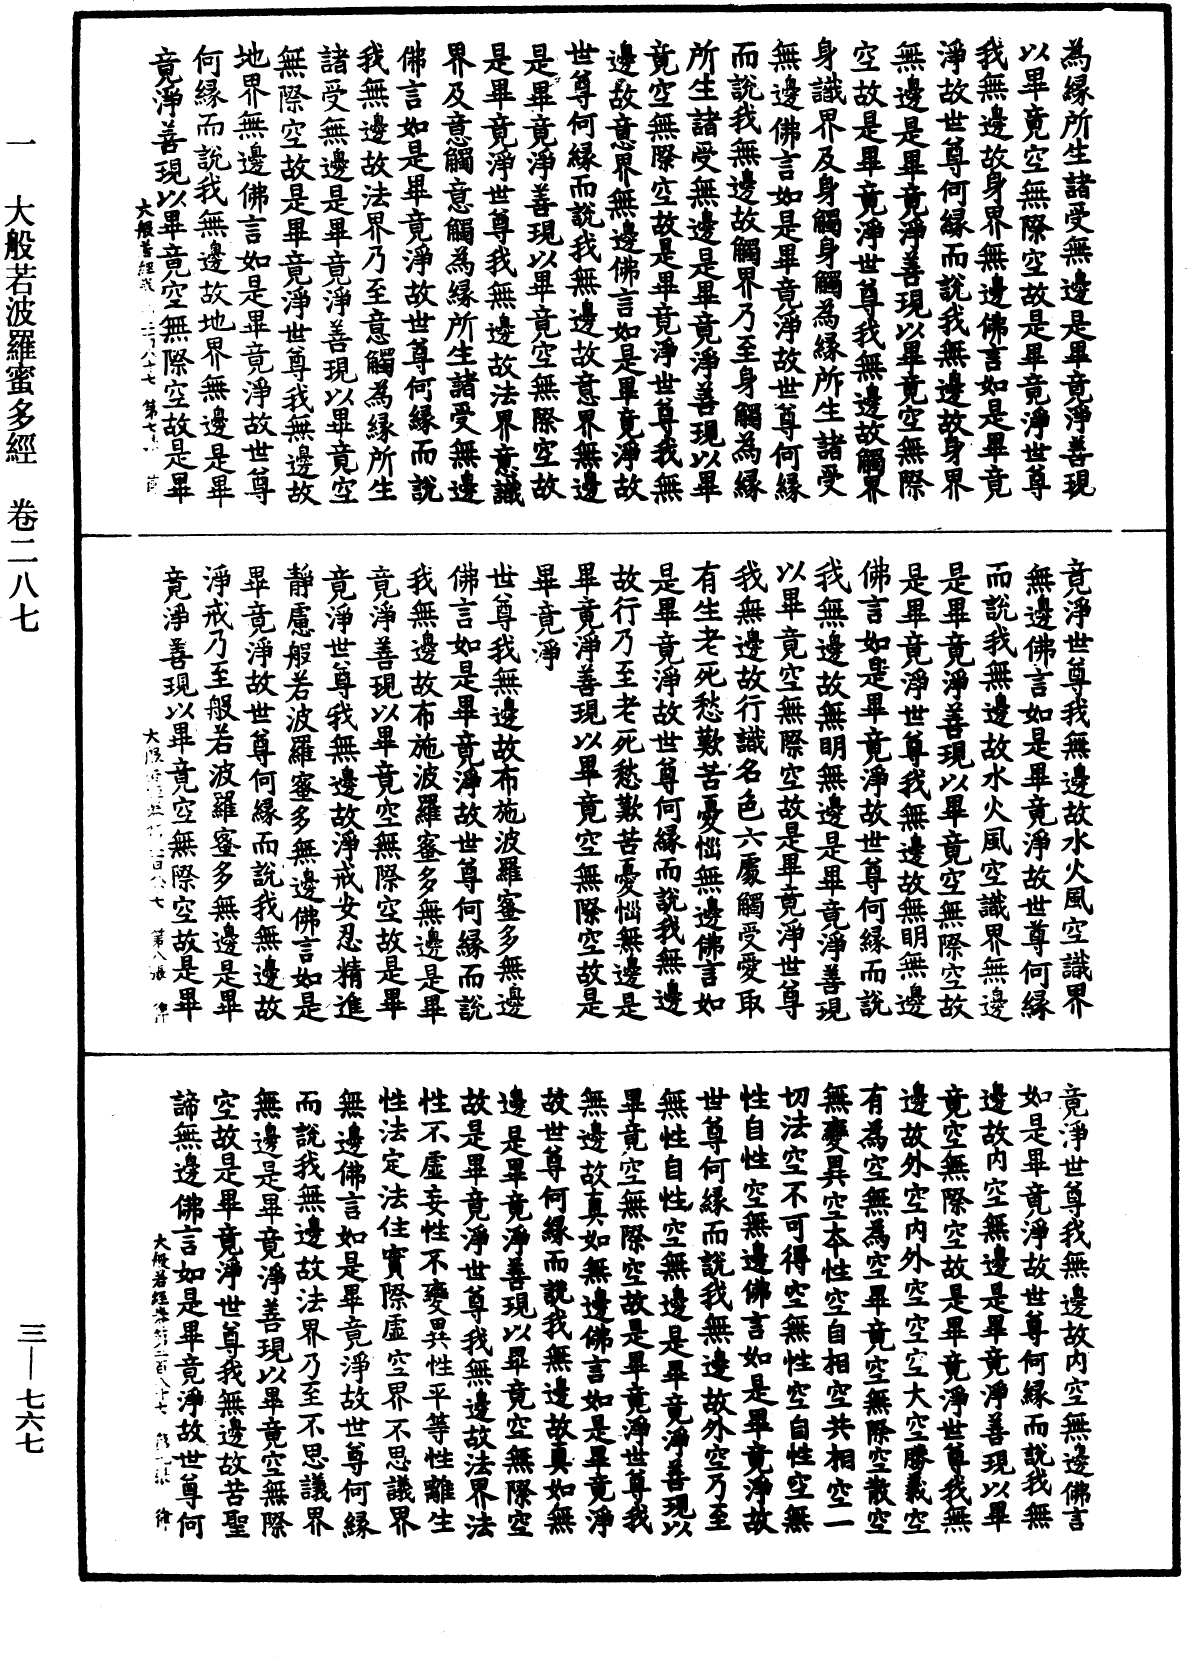 為緣所生諸受無邊是畢竟淨善現
以畢竟空無際空故是畢竟淨世尊
我無邊故身界無邊佛言如是畢竟
淨故世尊何緣而說我無邊故身界
無邊是畢竟淨善現以畢竟空無際
空故是畢竟淨世尊我無邊故觸界
身識界及身觸身觸為緣所生諸受
無邊佛言如是畢竟淨故世尊何緣
而說我無邊故觸界乃至身觸為緣
所生諸受無邊是畢竟淨善現以畢
竟空無際空故是畢竟淨世尊我無
邊故意界無邊佛言如是畢竟淨故
世尊何緣而說我無邊故意界無邊
是畢竟淨善現以畢竟空無際空故
是畢竟淨世尊我無邊故法界意識
界及意觸意觸為緣所生諸受無邊
佛言如是畢竟淨故世尊何緣而說
我無邊故法界乃至意觸為緣所生
諸受無邊是畢竟淨善現以畢竟空
無際空故是畢竟淨世尊我無邊故
地界無邊佛言如是畢竟淨故世尊
何緣而說我無邊故地界無邊是畢
竟淨善現以畢竟空無際空故是畢
竟淨世尊我無邊故水火風空識界
無邊佛言如是畢竟淨故世尊何緣
而說我無邊故水火風空識界無邊
是畢竟淨善現以畢竟空無際空故
是畢竟淨世尊我無邊故無明無邊
佛言如是畢竟淨故世尊何緣而說
我無邊故無明無邊是畢竟淨善現
以畢竟空無際空故是畢竟淨世尊
我無邊故行識名色六處觸受愛取
有生老死愁歎苦憂惱無邊佛言如
是畢竟淨故世尊何緣而說我無邊
故行乃至老死愁歎苦憂惱無邊是
畢竟淨善現以畢竟空無際空故是
畢竟淨
世尊我無邊故布施波羅蜜多無邊
佛言如是畢竟淨故世尊何緣而說
我無邊故布施波羅蜜多無邊是畢
竟淨善現以畢竟空無際空故是畢
竟淨世尊我無邊故淨戒安忍精進
靜慮般若波羅蜜多無邊佛言如是
畢竟淨故世尊何緣而說我無邊故
淨戒乃至般若波羅蜜多無邊是畢
竟淨善現以畢竟空無際空故是畢
竟淨世尊我無邊故內空無邊佛言
如是畢竟淨故世尊何緣而說我無
邊故內空無邊是畢竟淨善現以畢
竟空無際空故是畢竟淨世尊我無
邊故外空內外空空空大空勝義空
有為空無為空畢竟空無際空散空
無變異空本性空自相空共相空一
切法空不可得空無性空自性空無
性自性空無邊佛言如是畢竟淨故
世尊何緣而說我無邊故外空乃至
無性自性空無邊是畢竟淨善現以
畢竟空無際空故是畢竟淨世尊我
無邊故真如無邊佛言如是畢竟淨
故世尊何緣而說我無邊故真如無
邊是畢竟淨善現以畢竟空無際空
故是畢竟淨世尊我無邊故法界法
性不虛妄性不變異性平等性離生
性法定法住實際虛空界不思議界
無邊佛言如是畢竟淨故世尊何緣
而說我無邊故法界乃至不思議界
無邊是畢竟淨善現以畢竟空無際
空故是畢竟淨世尊我無邊故苦聖
諦無邊佛言如是畢竟淨故世尊何
一 大般若波羅蜜多經 卷二八七
三—七六七